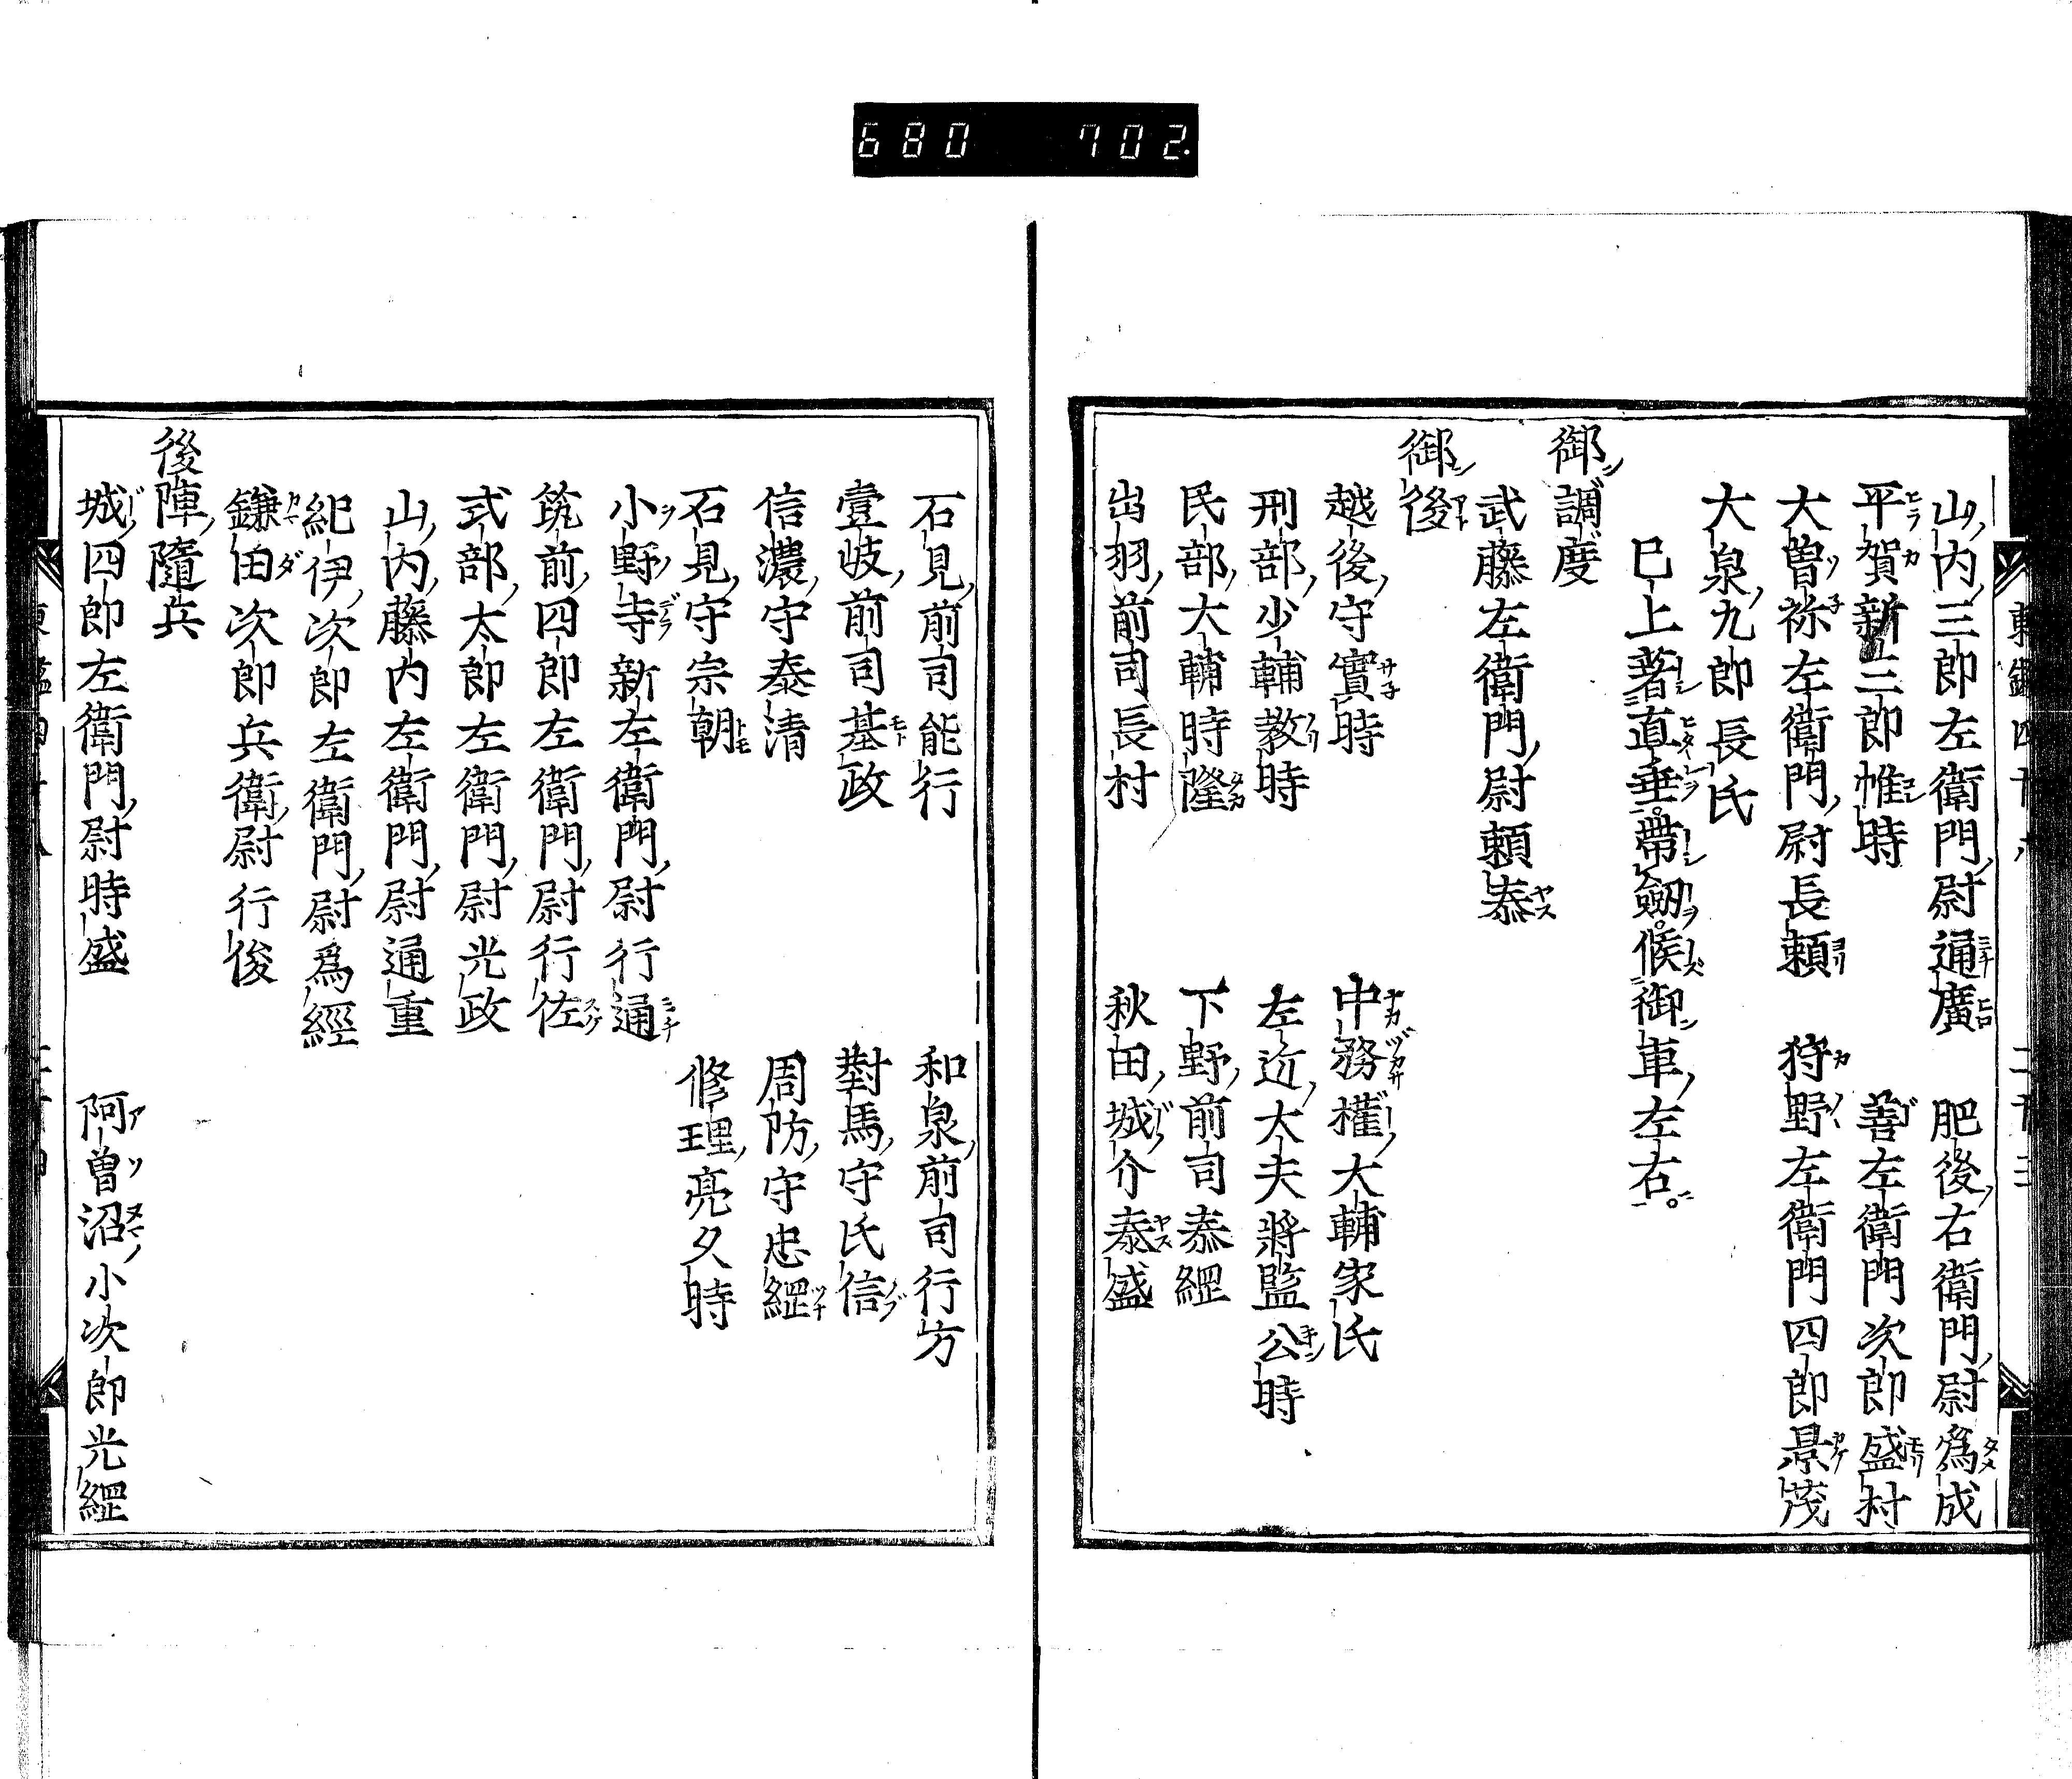 680 702.
山内三郎左衛門尉通廣 肥後右衛門尉爲成
平賀新三郎惟時 善左衛門次郎盛村
大曽祢左衛門尉長頼 狩野左衛門四郎景茂
大泉九郎長氏
巳上著直垂。帶劔。候御車左右。
御調度
武藤左衛門尉頼泰
御後
越後守實時 中務權大輔家氏
刑部少輔教時 左近大夫將監公時
民部大輔時隆 下野前司泰經
出羽前司長村 秋田城介泰盛
石見前司能行 和泉前司行方
壹岐前司基政 對馬守氏信
信濃守泰清 周防守忠經
石見守宗朝 修理亮久時
小野寺新左衛門尉行通
筑前四郎左衛門尉行佐
式部太郎左衛門尉光政
山内藤内左衛門尉通重
紀伊次郎左衛門尉爲經
鎌田次郎兵衛尉行俊
後陣隨兵
城四郎左衛門尉時盛 阿曽沼小次郎光經